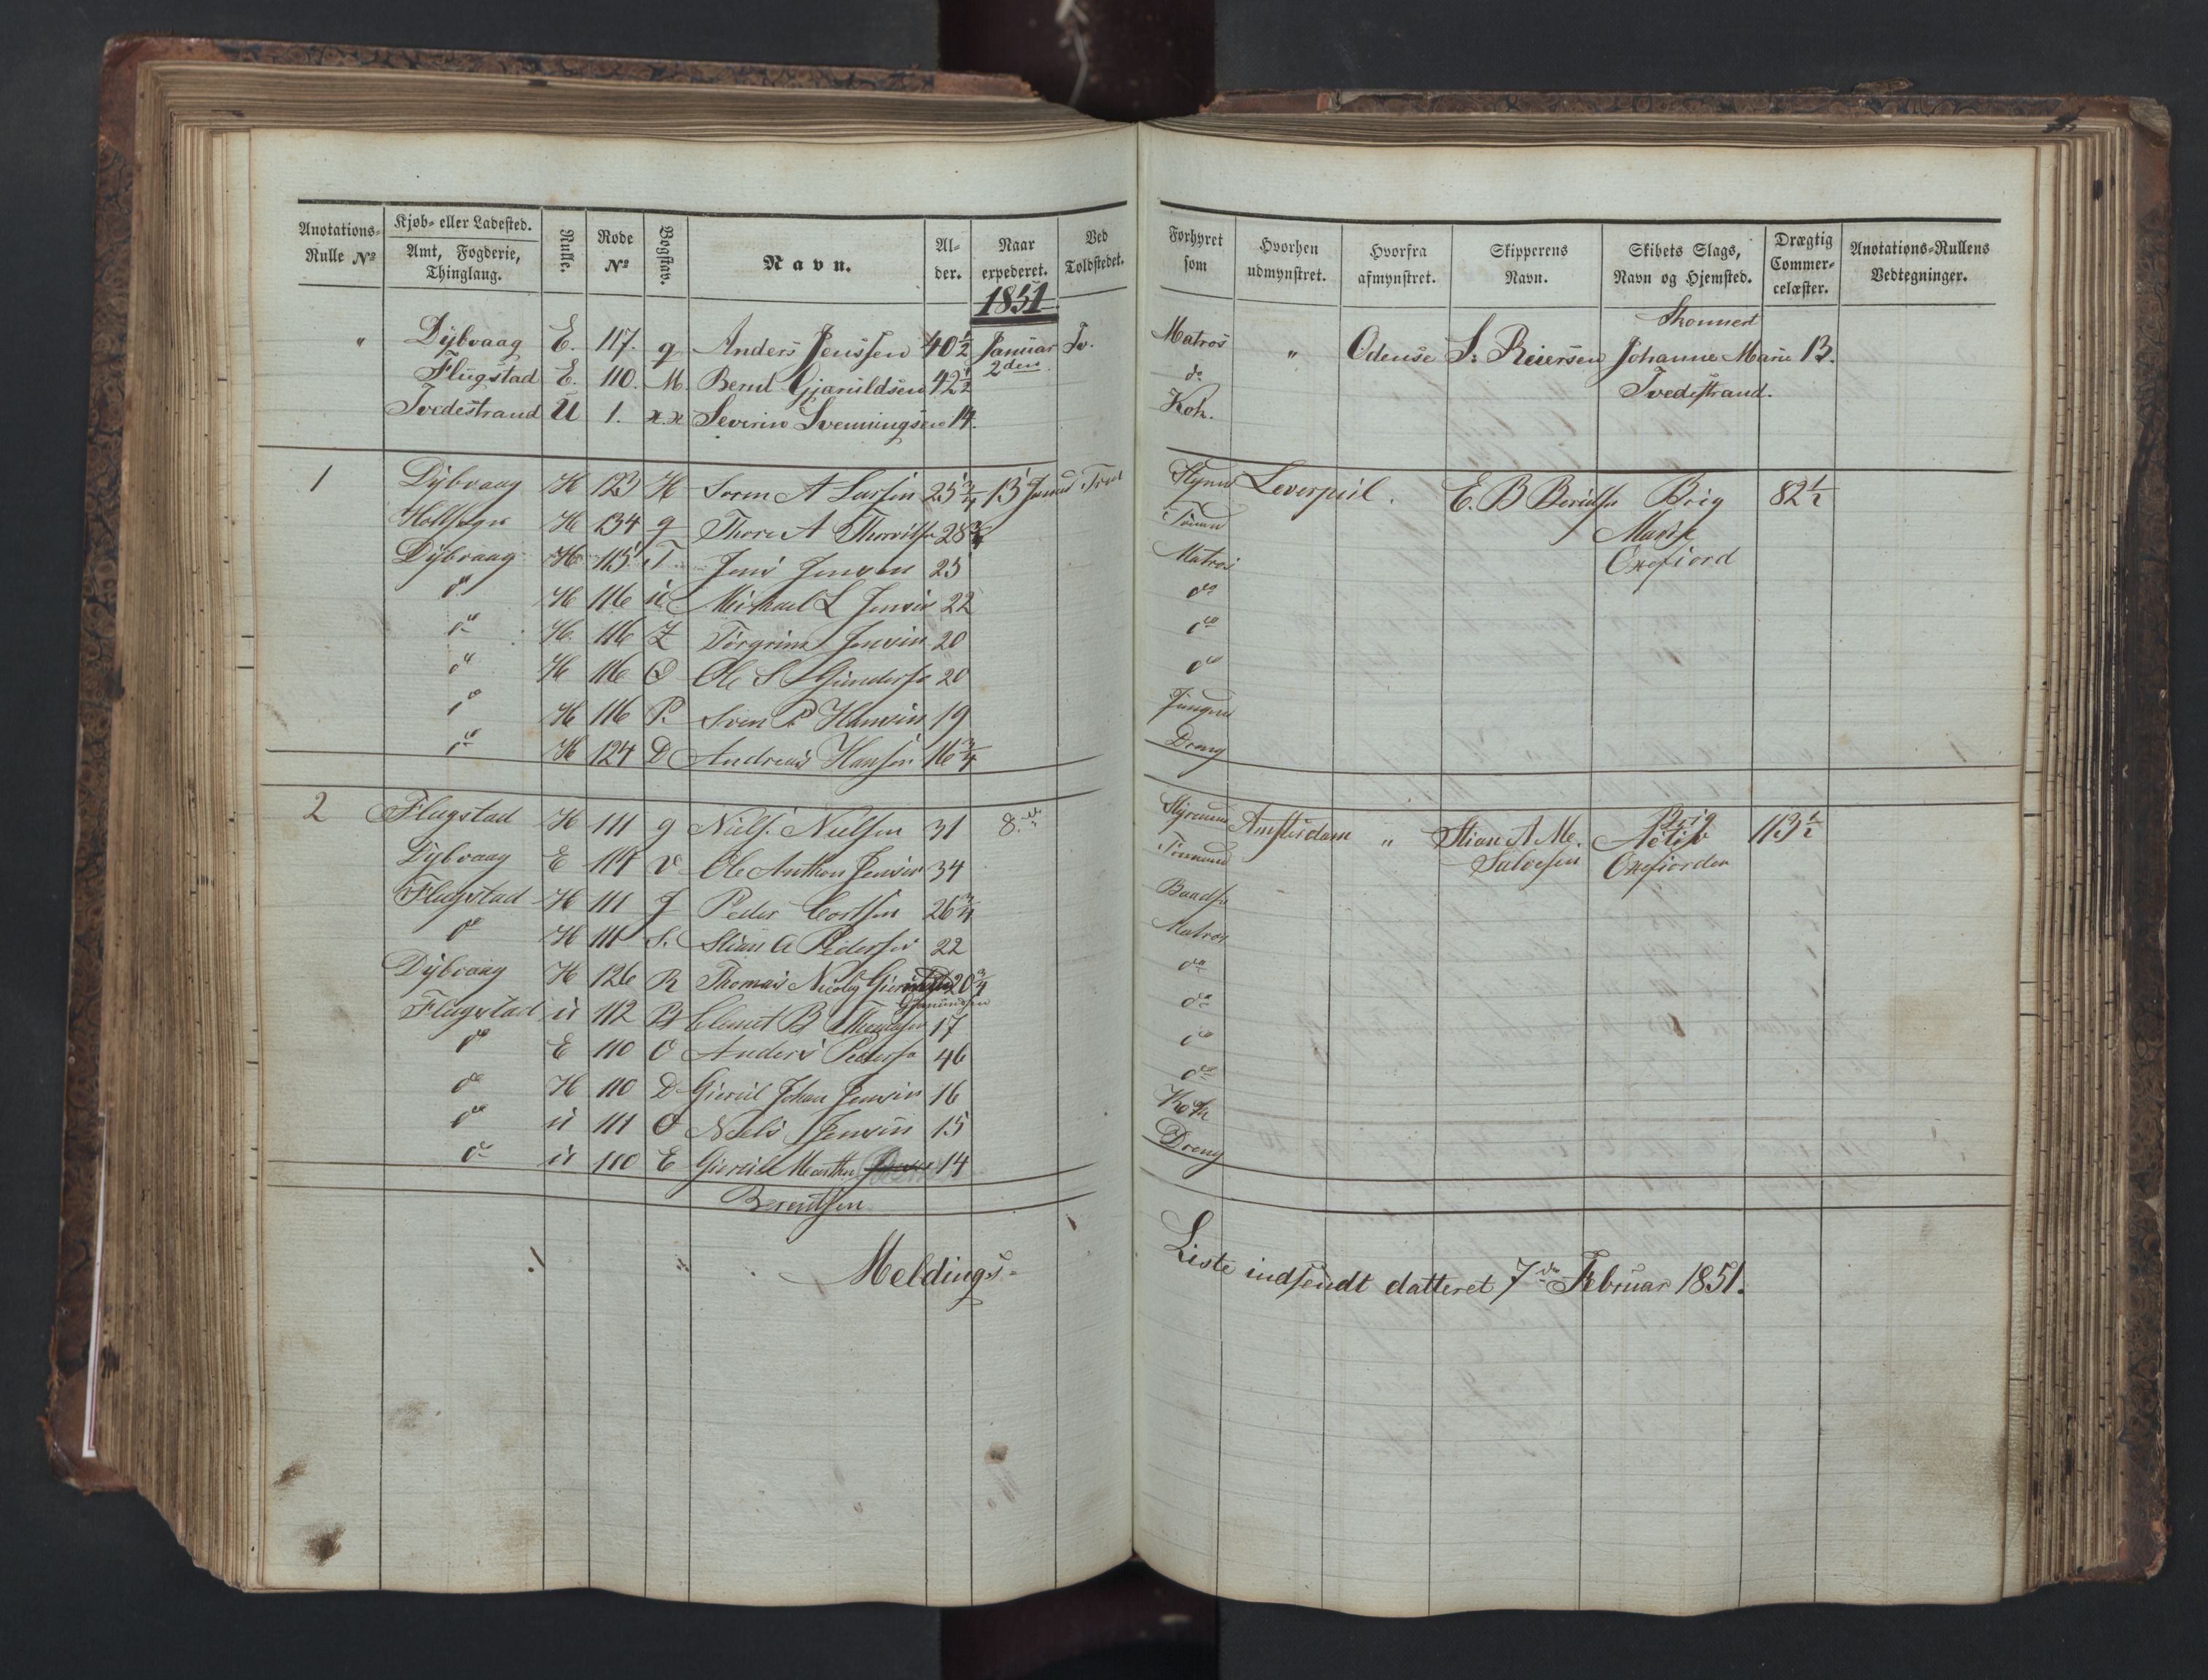 Anotations-Rulle No
Kjøb- eller Ladested.
Amt, Fogderie, Thinglaug.
Rulle.
Rode No
Bogstav.
Navn.
Alder.
Naar expederet.
Ved Toldstedet.
Forhyret som
Hvorhen udmynstret.
Hvorfra afmynstret.
Skipperens Navn.
Skibets Slags, Navn og Hjemsted.
Drægtig Commercelæster.
Anotations-Rullens Vedtegninger.
1851
" Dybvaag E. 117. g Anders Jenssen 40 1/2 Januar Tv. Matros " Odense S. Reiersen Skonnert Johanne Marie 13.
Flugstad E. 110. M. Bernt Gjeruldsen 42 1/2 2den do Tvedestrand.
Tvedestrand U 1. x.x Severin Svenningsen 14. Kok.
1 Dybvaag H 123 H Soren A Larsen 25 3/4 13 Leverpul. E. B Brig 82 1/2
H 134 g Thore A 28 3/4
Dybvaag H 115 T Jens Jensen 25 Matros Oxefiord
do H 116 ü Michael L Jensen 22 do
do H. 116 Z Torgrim Jensen 20 do
do H 116 O Ole S Gundersen 20 do
do H 116 P. Sven P Hansen 19 Jungmd
do H 124 D Andreas Hansen 16 3/4 Dreng
2 Flagstad H 111 g Niels Nielsen 31 8. Styrmand Amsterdam " Stian A Me. Salvesen Brig Activ Oxefiorden 113 1/2
Dybvaag E 114 V Ole Anthon Jensen 34 Tømmd
Flagstad H 111 J Peder 26 3/4 Baadsm
do H 111 S. Stian A Pedersen 22 Matros
Dybvaag H 126 R Thomas Nicolay 20 3/4 do
Gjermundsen
Flagstad ü 112 B B 17 do
do E 110 O Anders Pedersen 46 do
do H 110 D Gierul Johan Jensen 16 do
do ü 111 O Niels Jensen 15 Kok
do ü 110 E Gierul Marthin 14 Dreng
Berentsen
Meldings- Liste indsendt datteret 7de Februar 1851.